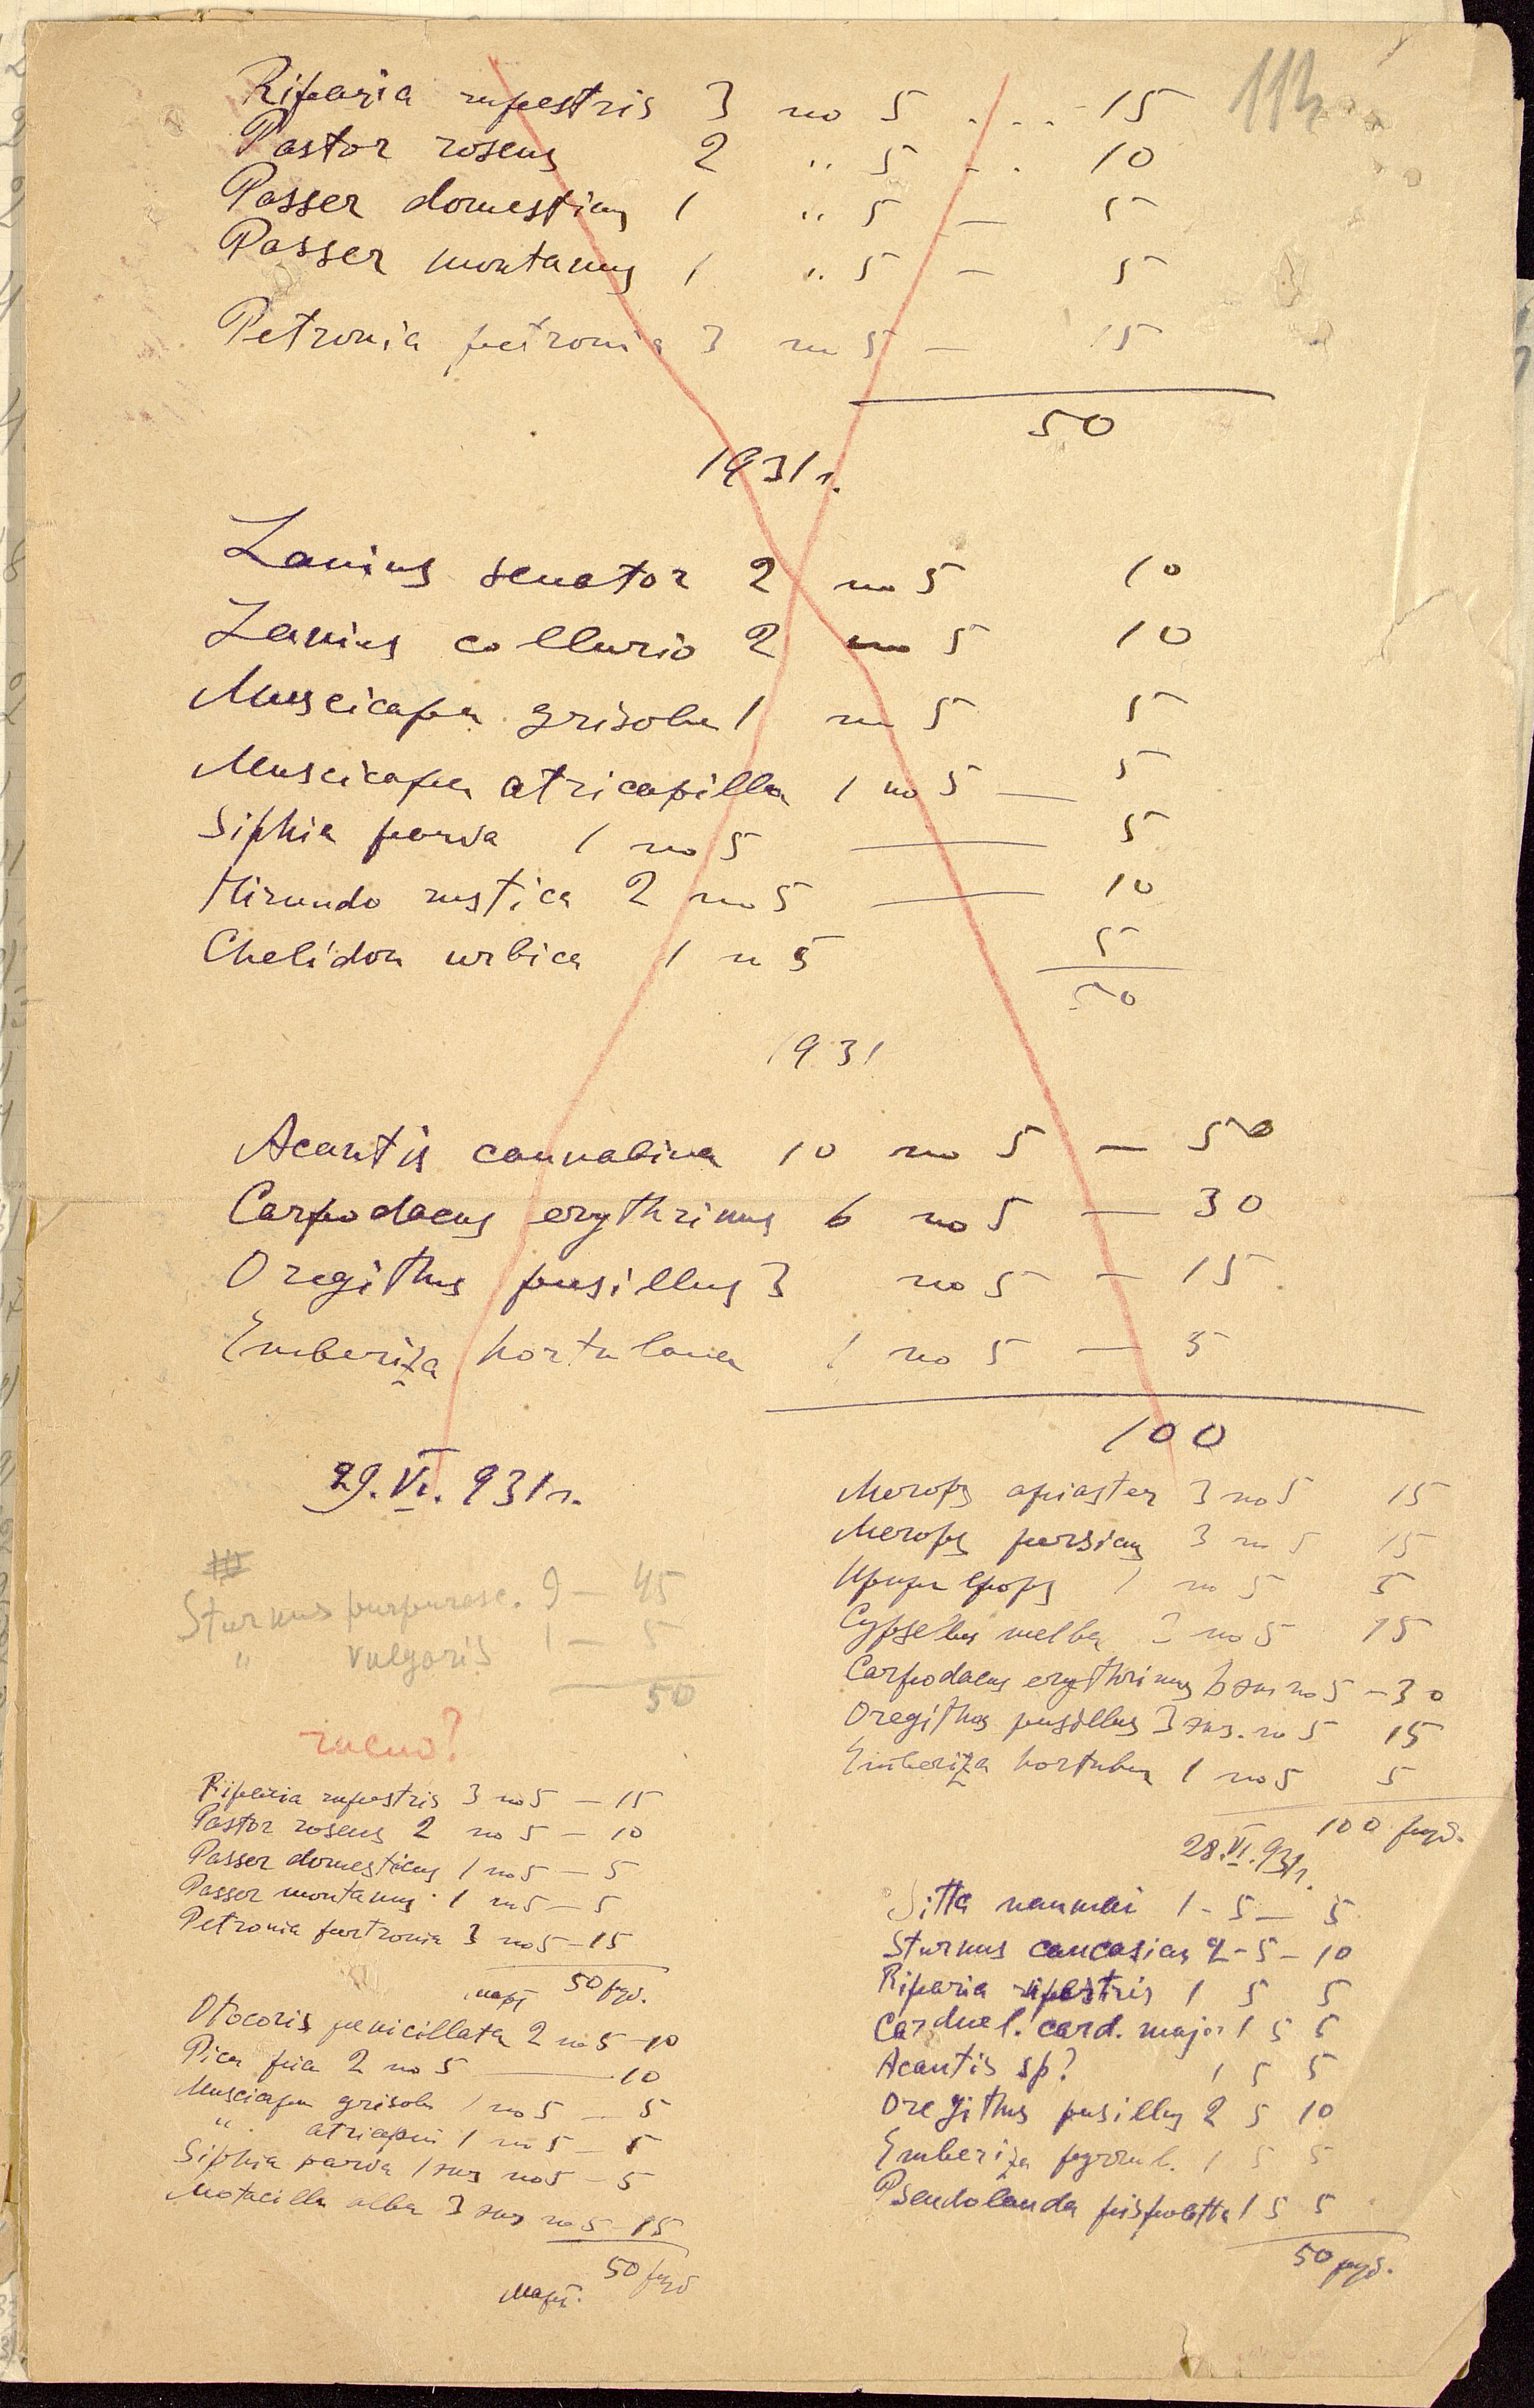 112
Riparia rupestris 3 по 5 . . . . 15
Pastor roseus 2 " 5 - . 10
Passer domesticus 1 " 5 — 5
Passer montanus 1 " 5 — 5
Petronia petronia 3 по 5 — 15
50
1931 г.
Lanius senator 2 по 5 10
Lanius collurio 2 по 5 10
Muscicapa grisola 1 по 5 5
Muscicapa atricapilla 1 по 5 — 5
Siphia parva 1 по 5 — 5
Hirundo rustica 2 по 5 — 10
Chelidon urbica 1 п 5 5
50
1931
Acantis cannabina 10 по 5 — 50
Carpodacus erythrinus 6 по 5 — 30
Oregithus pusillus 3 по 5 — 15
Emberiza hortulana 1 по 5 — 5
100
29.VI.931 г.
Sturnus purpurasc. 9 — 45
" vulgaris 1 — 5
50
Riparia rupestris 3 по 5 — 15
Pastor roseus 2 по 5 — 10
Passer domesticus 1 по 5 — 5
Passer montanus 1 по 5 — 5
Petronia petronia 3 по 5 — 15
март 50 руб.
Otocoris penicillata 2 по 5 — 10
Pica pica 2 по 5 — 10
Muscicapa grisola 1 по 5 — 5
" atricapil 1 по 5 — 5
Siphia parva 1 экз по 5 — 5
Motacilla alba 3 экз по 5 — 15
50 руб
март.
Merops apiaster 3 по 5 15
Merops persicus 3 по 5 15
Upupa epops 1 по 5 5
Cypselus melba 3 по 5 15
Carpodacus erythrinus 6 экз по 5 — 30
Oregithus pusillus 3 экз. по 5 15
Emberiza hortulana 1 по 5 5
100 руб.
28.VI.931 г.
Sitta naumai 1 - 5 — 5
Sturnus caucasicus 2 - 5 — 10
Riparia rupestris 1 5 5
Carduel. card. major 1 5 5
Acantis sp? 1 5 5
Oregithus pusillus 2 5 10
Emberiza pyrrul. 1 5 5
Pseudolauda pispoletta 1 5 5
50 руб.